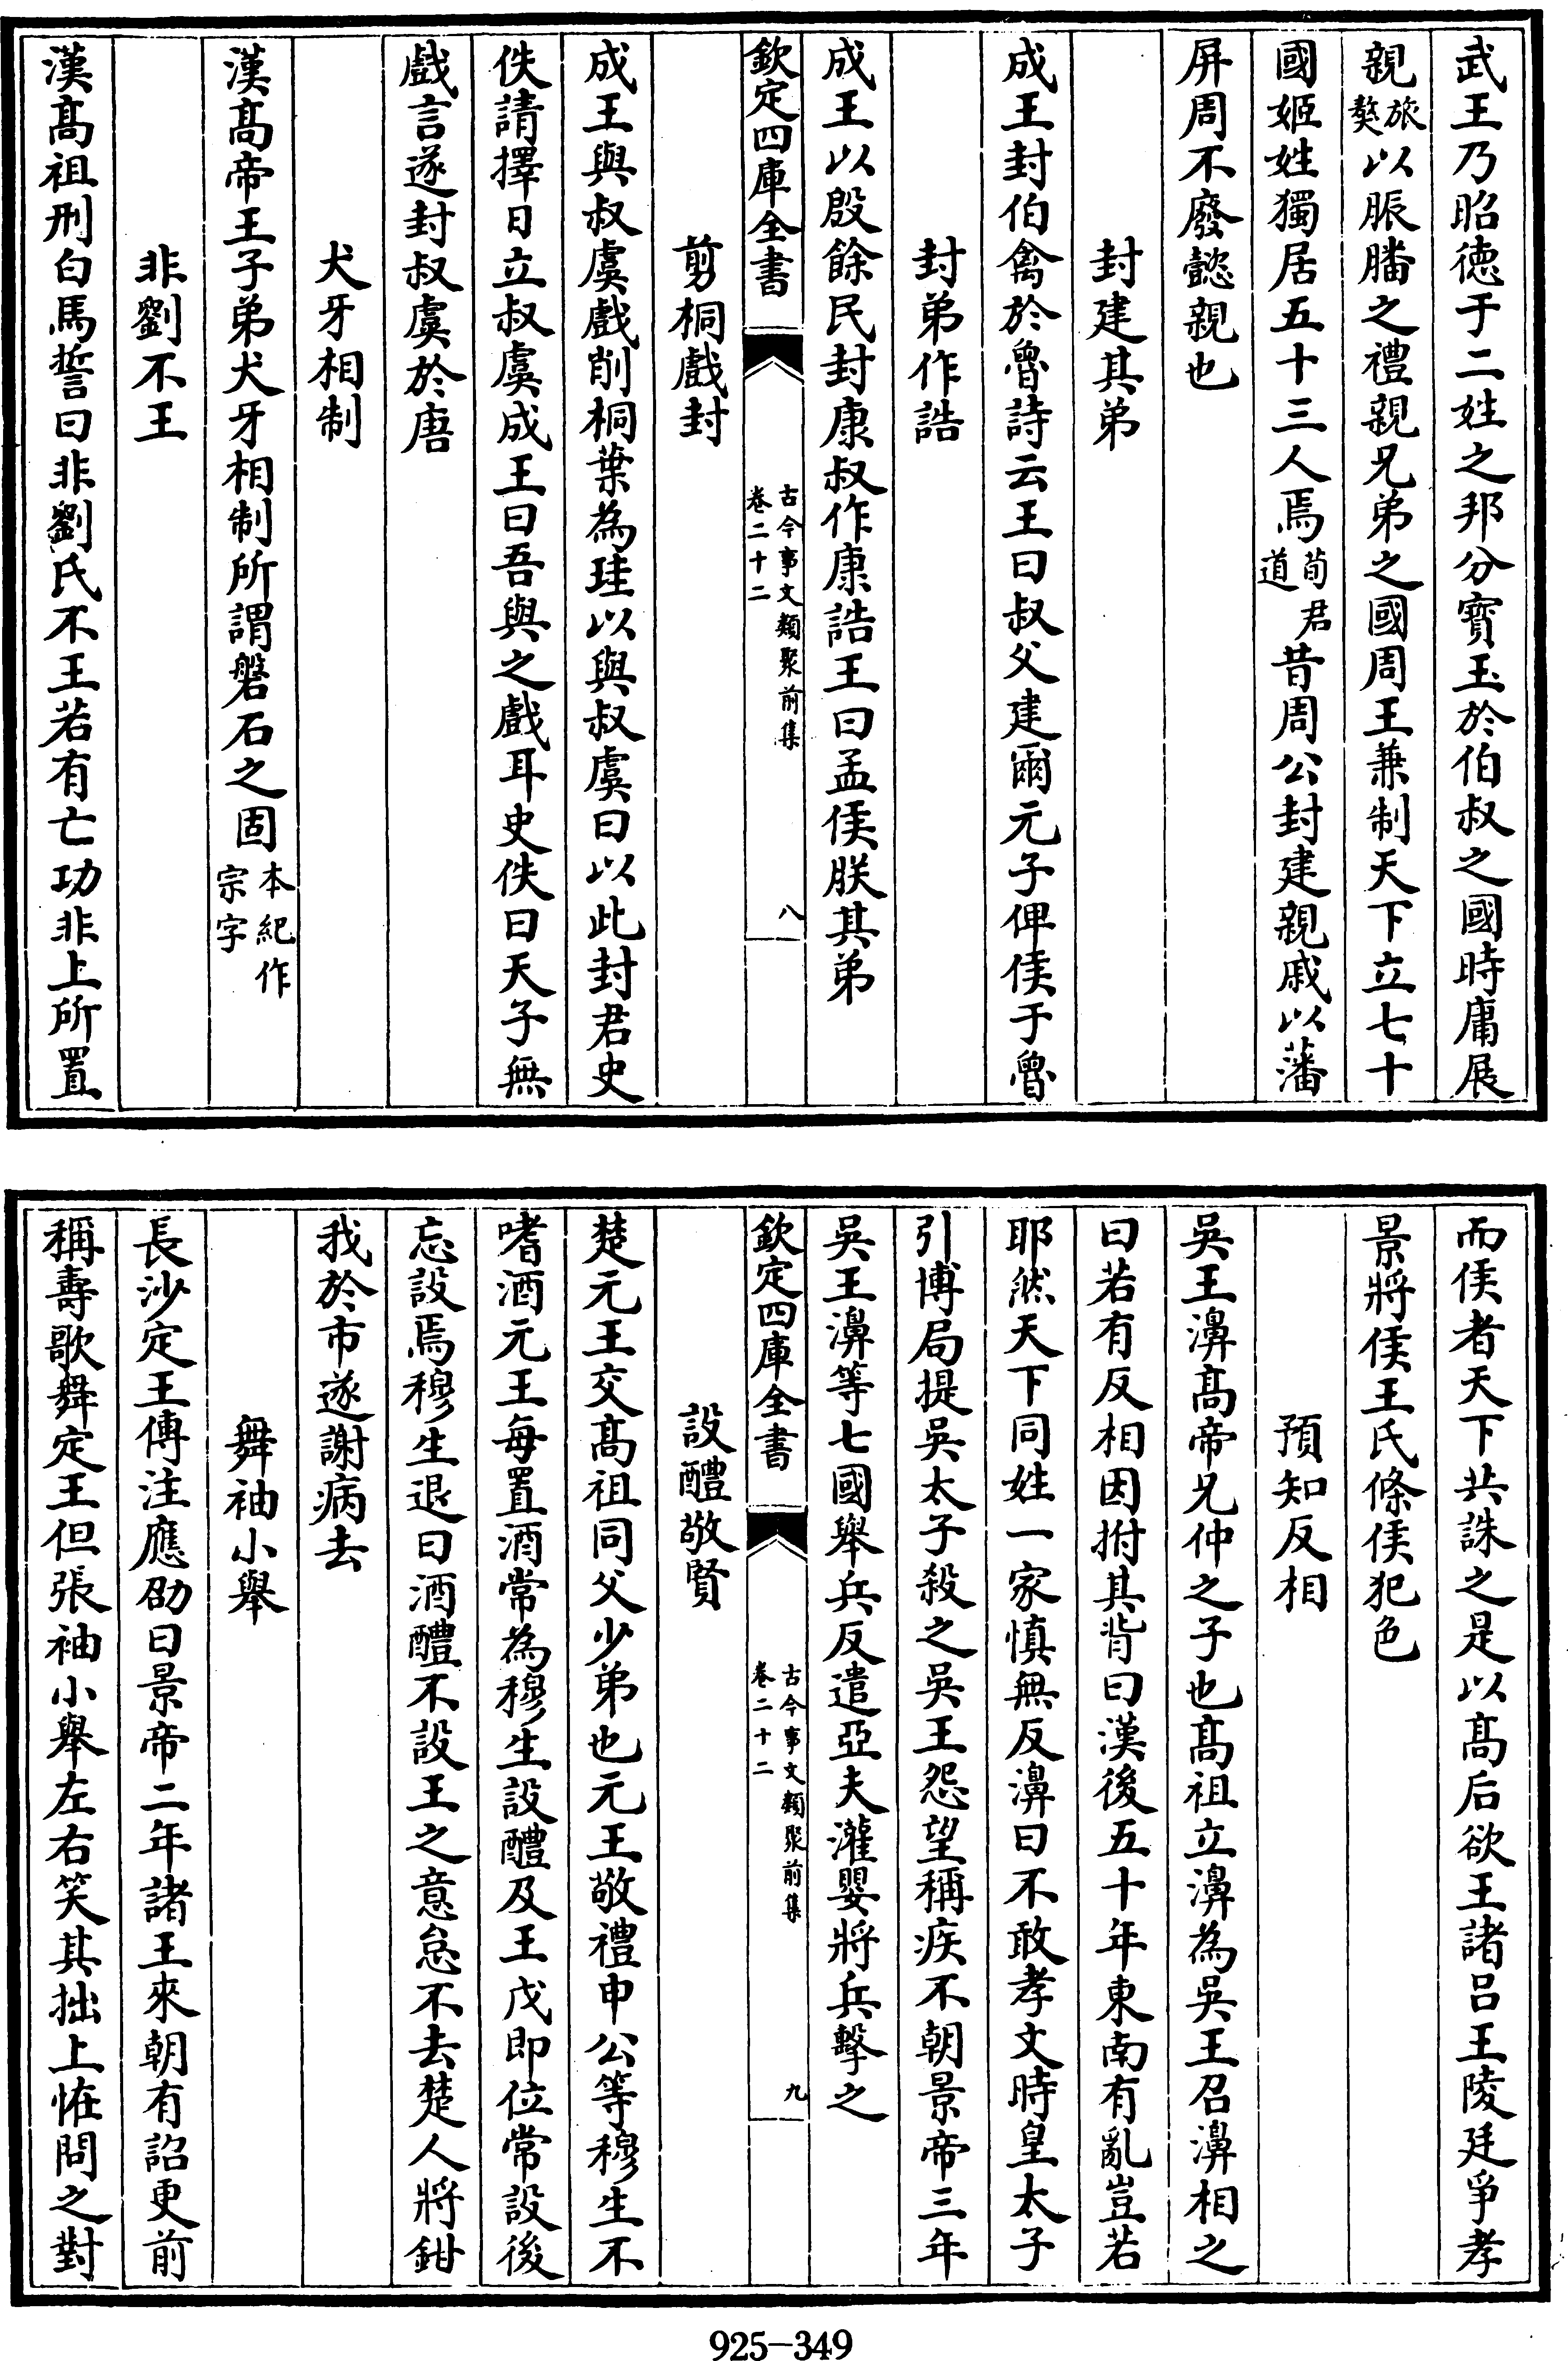 武王乃昭徳于二姓之邦分寳玉於伯叔之國時庸展
親旅獒以脤膰之禮親兄弟之國周王兼制天下立七十
國姬姓獨居五十三人焉荀君道昔周公封建親戚以藩
屏周不廢懿親也
封建其弟
成王封伯禽於魯詩云王曰叔父建爾元子俾侯于魯
封弟作誥
成王以殷餘民封康叔作康誥王曰孟侯朕其弟
欽定四庫全書
古今事文類聚前集
卷二十二
八
剪桐戲封
成王與叔虞戲削桐葉為珪以與叔虞曰以此封君史
佚請擇日立叔虞成王曰吾與之戲耳史佚曰天子無
戲言遂封叔虞於唐
犬牙相制
漢髙帝王子弟犬牙相制所謂磐石之固本紀作宗字
非劉不王
漢髙祖刑白馬誓曰非劉氏不王若有亡功非上所置
而侯者天下共誅之是以髙后欲王諸吕王陵廷爭孝
景將侯王氏條侯犯色
預知反相
吳王濞髙帝兄仲之子也髙祖立濞為吳王召濞相之
曰若有反相因拊其背曰漢後五十年東南有亂豈若
耶然天下同姓一家慎無反濞曰不敢孝文時皇太子
引博局提吳太子殺之吳王怨望稱疾不朝景帝三年
吳王濞等七國舉兵反遣亞夫灌嬰將兵擊之
欽定四庫全書
古今事文類聚前集
卷二十二
九
設醴敬賢
楚元王交髙祖同父少弟也元王敬禮申公等穆生不
嗜酒元王每置酒常為穆生設醴及王戊即位常設後
忘設焉穆生退曰酒醴不設王之意怠不去楚人將鉗
我於市遂謝病去
舞袖小舉
長沙定王傳注應劭曰景帝二年諸王來朝有詔更前
稱壽歌舞定王但張袖小舉左右笑其拙上恠問之對
925-349